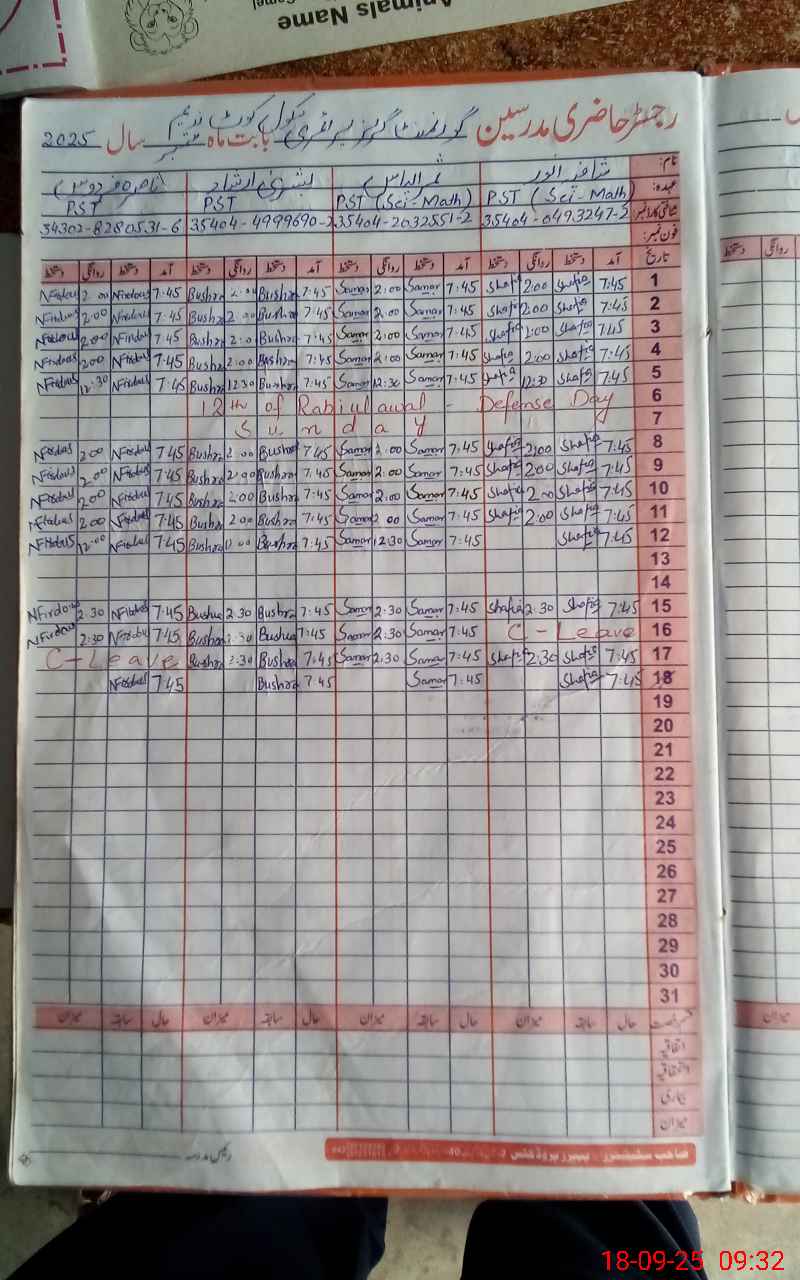 Animals Name
رجسٹر حاضری مدرسین گورنمنٹ گرلز پرائمری سکول کوٹ ندیم بابت ماہ ستمبر سال 2025
نام:
عہدہ: PST (Sci-Math) PST (Sci-Math) PST PST
شناختی کارڈ نمبر 35404-0493247-2 35404-2032551-2 35404-4999690-2 34302-8280531-6
فون نمبر:
تاریخ آمد دستخط روانگی دستخط آمد دستخط روانگی دستخط آمد دستخط روانگی دستخط آمد دستخط روانگی دستخط
NFirdous 2:00 NFirdous 7:45 Bushra 2:00 Bushra 7:45 Samar 2:00 Samar 7:45 Shafia 2:00 Shafia 7:45 1
NFirdous 2:00 NFirdous 7:45 Bushra 2:00 Bushra 7:45 Samar 2:00 Samar 7:45 Shafia 2:00 Shafia 7:45 2
NFirdous 2:00 NFirdous 7:45 Bushra 2:00 Bushra 7:45 Samar 2:00 Samar 7:45 Shafia 2:00 Shafia 7:45 3
NFirdous 2:00 NFirdous 7:45 Bushra 2:00 Bushra 7:45 Samar 2:00 Samar 7:45 Shafia 2:00 Shafia 7:45 4
NFirdous 12:30 NFirdous 7:45 Bushra 12:30 Bushra 7:45 Samar 12:30 Samar 7:45 Shafia 12:30 Shafia 7:45 5
12th of Rabiulawal - Defense Day 6
Sunday 7
NFirdous 2:00 NFirdous 7:45 Bushra 2:00 Bushra 7:45 Samar 2:00 Samar 7:45 Shafia 2:00 Shafia 7:45 8
NFirdous 2:00 NFirdous 7:45 Bushra 2:00 Bushra 7:45 Samar 2:00 Samar 7:45 Shafia 2:00 Shafia 7:45 9
NFirdous 2:00 NFirdous 7:45 Bushra 2:00 Bushra 7:45 Samar 2:00 Samar 7:45 Shafia 2:00 Shafia 7:45 10
NFirdous 2:00 NFirdous 7:45 Bushra 2:00 Bushra 7:45 Samar 2:00 Samar 7:45 Shafia 2:00 Shafia 7:45 11
NFirdous 12:00 NFirdous 7:45 Bushra Bushra 7:45 Samar 12:30 Samar 7:45 Shafia 7:45 12
13
14
NFirdous 2:30 NFirdous 7:45 Bushra 2:30 Bushra 7:45 Samar 2:30 Samar 7:45 Shafia 2:30 Shafia 7:45 15
NFirdous 2:30 NFirdous 7:45 Bushra 2:30 Bushra 7:45 Samar 2:30 Samar 7:45 C-Leave 16
C-Leave Bushra 2:30 Bushra 7:45 Samar 2:30 Samar 7:45 Shafia 2:30 Shafia 7:45 17
NFirdous 7:45 Bushra 7:45 Samar 7:45 Shafia 7:45 18
19
20
21
22
23
24
25
26
27
28
29
30
31
قسم رخصت حال سابقہ میزان حال سابقہ میزان حال سابقہ میزان حال سابقہ میزان
اتفاقیہ
استحقاقیہ
بیماری
میزان
رئیس مدرسہ
18-09-25 09:32